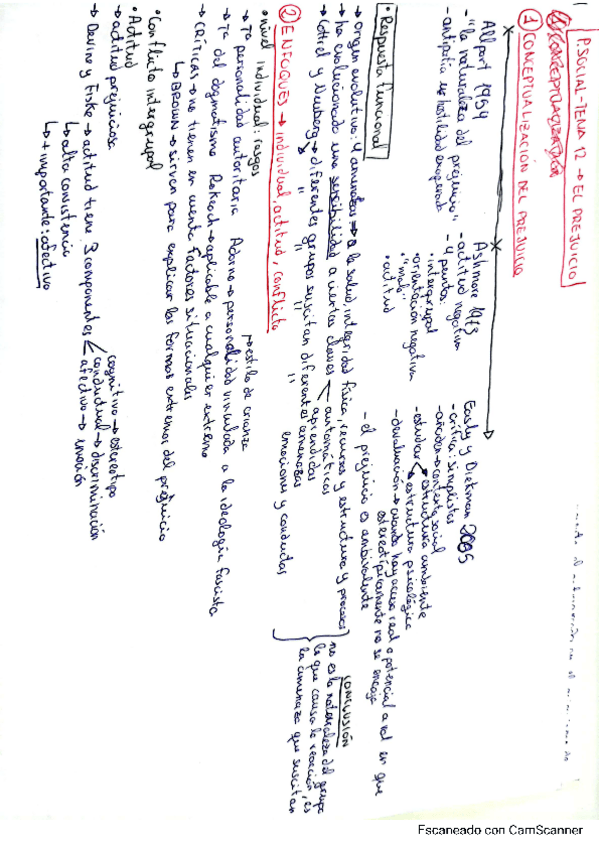 PSOCIAL-TEMA 12 → EL PREJUICIO
① CONCEPTUALIZACIÓN DEL PREJUICIO
Allport 1954
- "la naturaleza del prejuicio"
- antipatía y hostilidad exagerada
Ashmore 1973
- actitud negativa
- 4 puntos
• intergrupal
• orientación negativa
• "malo"
• actitud
Eagly y Diekman 2005
- crítica: simplistas
- añaden → contexto social
- estudiar → estructura ambiente
→ estructura psicológica
- devaluación → cuando hay acceso real o potencial a rol en que
estereotípicamente no se encaja
- el prejuicio es ambivalente
• Respuesta funcional
→ origen evolutivo: 4 amenazas → a la salud, integridad física, recursos y estructura y procesos
→ ha evolucionado una sensibilidad a ciertas claves
automáticas
aprendidas
→ Cottrel y Neuberg → diferentes grupos suscitan diferentes amenazas
" " " emociones y conductas
CONCLUSIÓN
no es la naturaleza del grupo
lo que causa la reacción, es
la amenaza que suscitan
② ENFOQUES → individual, actitud, conflicto
• nivel individual: rasgos
→ estilo de crianza
→ Tª personalidad autoritaria Adorno → personalidad vinculada a la ideología fascista
→ Tª del dogmatismo Rokeach → aplicable a cualquier extremo
→ CRÍTICAS → no tienen en cuenta factores situacionales
↳ BROWN → sirven para explicar las formas extremas del prejuicio
• Conflicto intergrupal
• Actitud
→ actitud prejuiciosa
→ Devine y Fiske → actitud tiene 3 componentes
cognitivo → estereotipo
conductual → discriminación
afectivo → emoción
↳ alta consistencia
↳ + importante: afectivo
Escaneado con CamScanner